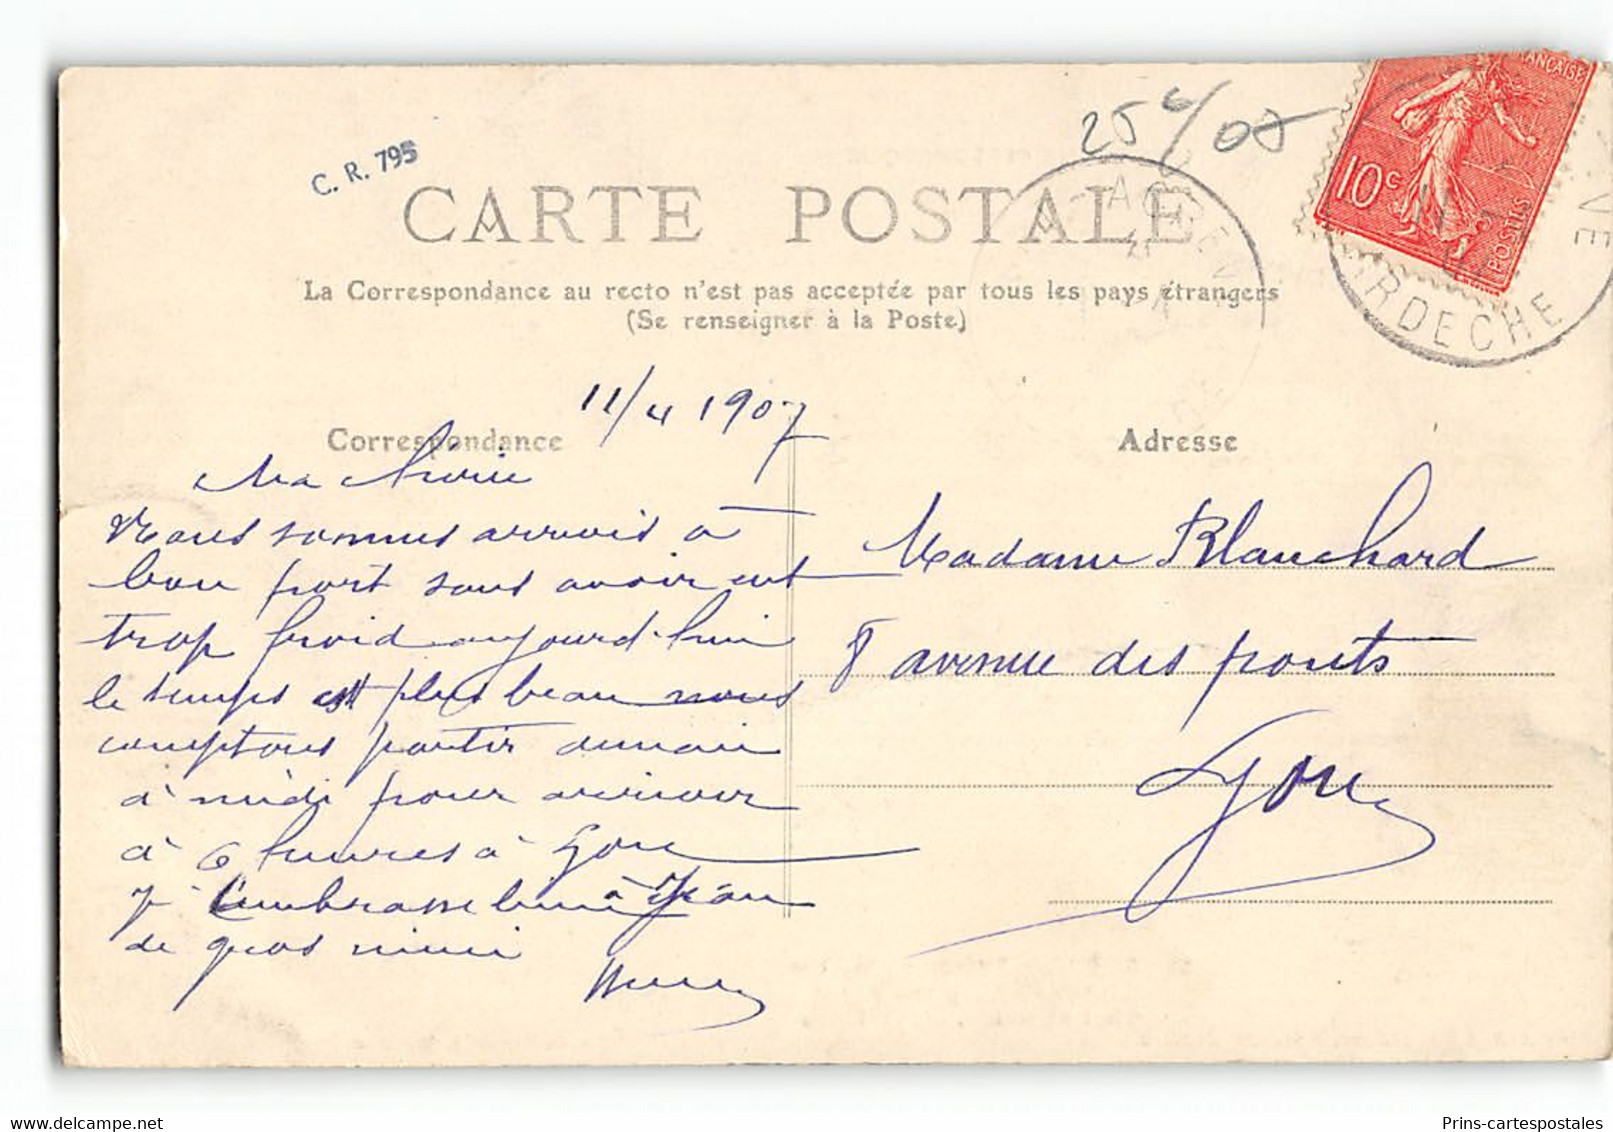 25 6/08
C. R. 795
CARTE POSTALE
La Correspondance au recto n'est pas acceptée par tous les pays étrangers
(Se renseigner à la Poste)
FRANÇAISE
10c
POSTES
ARDECHE
11/4 1907
Correspondance
Adresse
Ma
Nous sommes arrivés à
bon port sans avoir eut
trop froid aujourd'hui
le temps est plus beau nous
comptons partir demain
à midi pour arriver
à 6 heures à Lyon
Je t'embrasse bien à Jean
de gros mimi
Madame Blanchard
8 avenue des ponts
Lyon
Prins-cartespostales